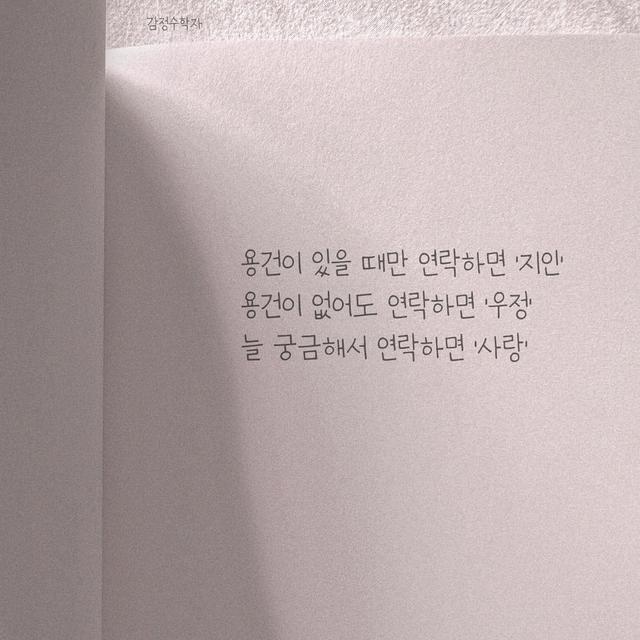 감정수학자
용건이 있을 때만 연락하면 '지인'
용건이 없어도 연락하면 '우정'
늘 궁금해서 연락하면 '사랑'